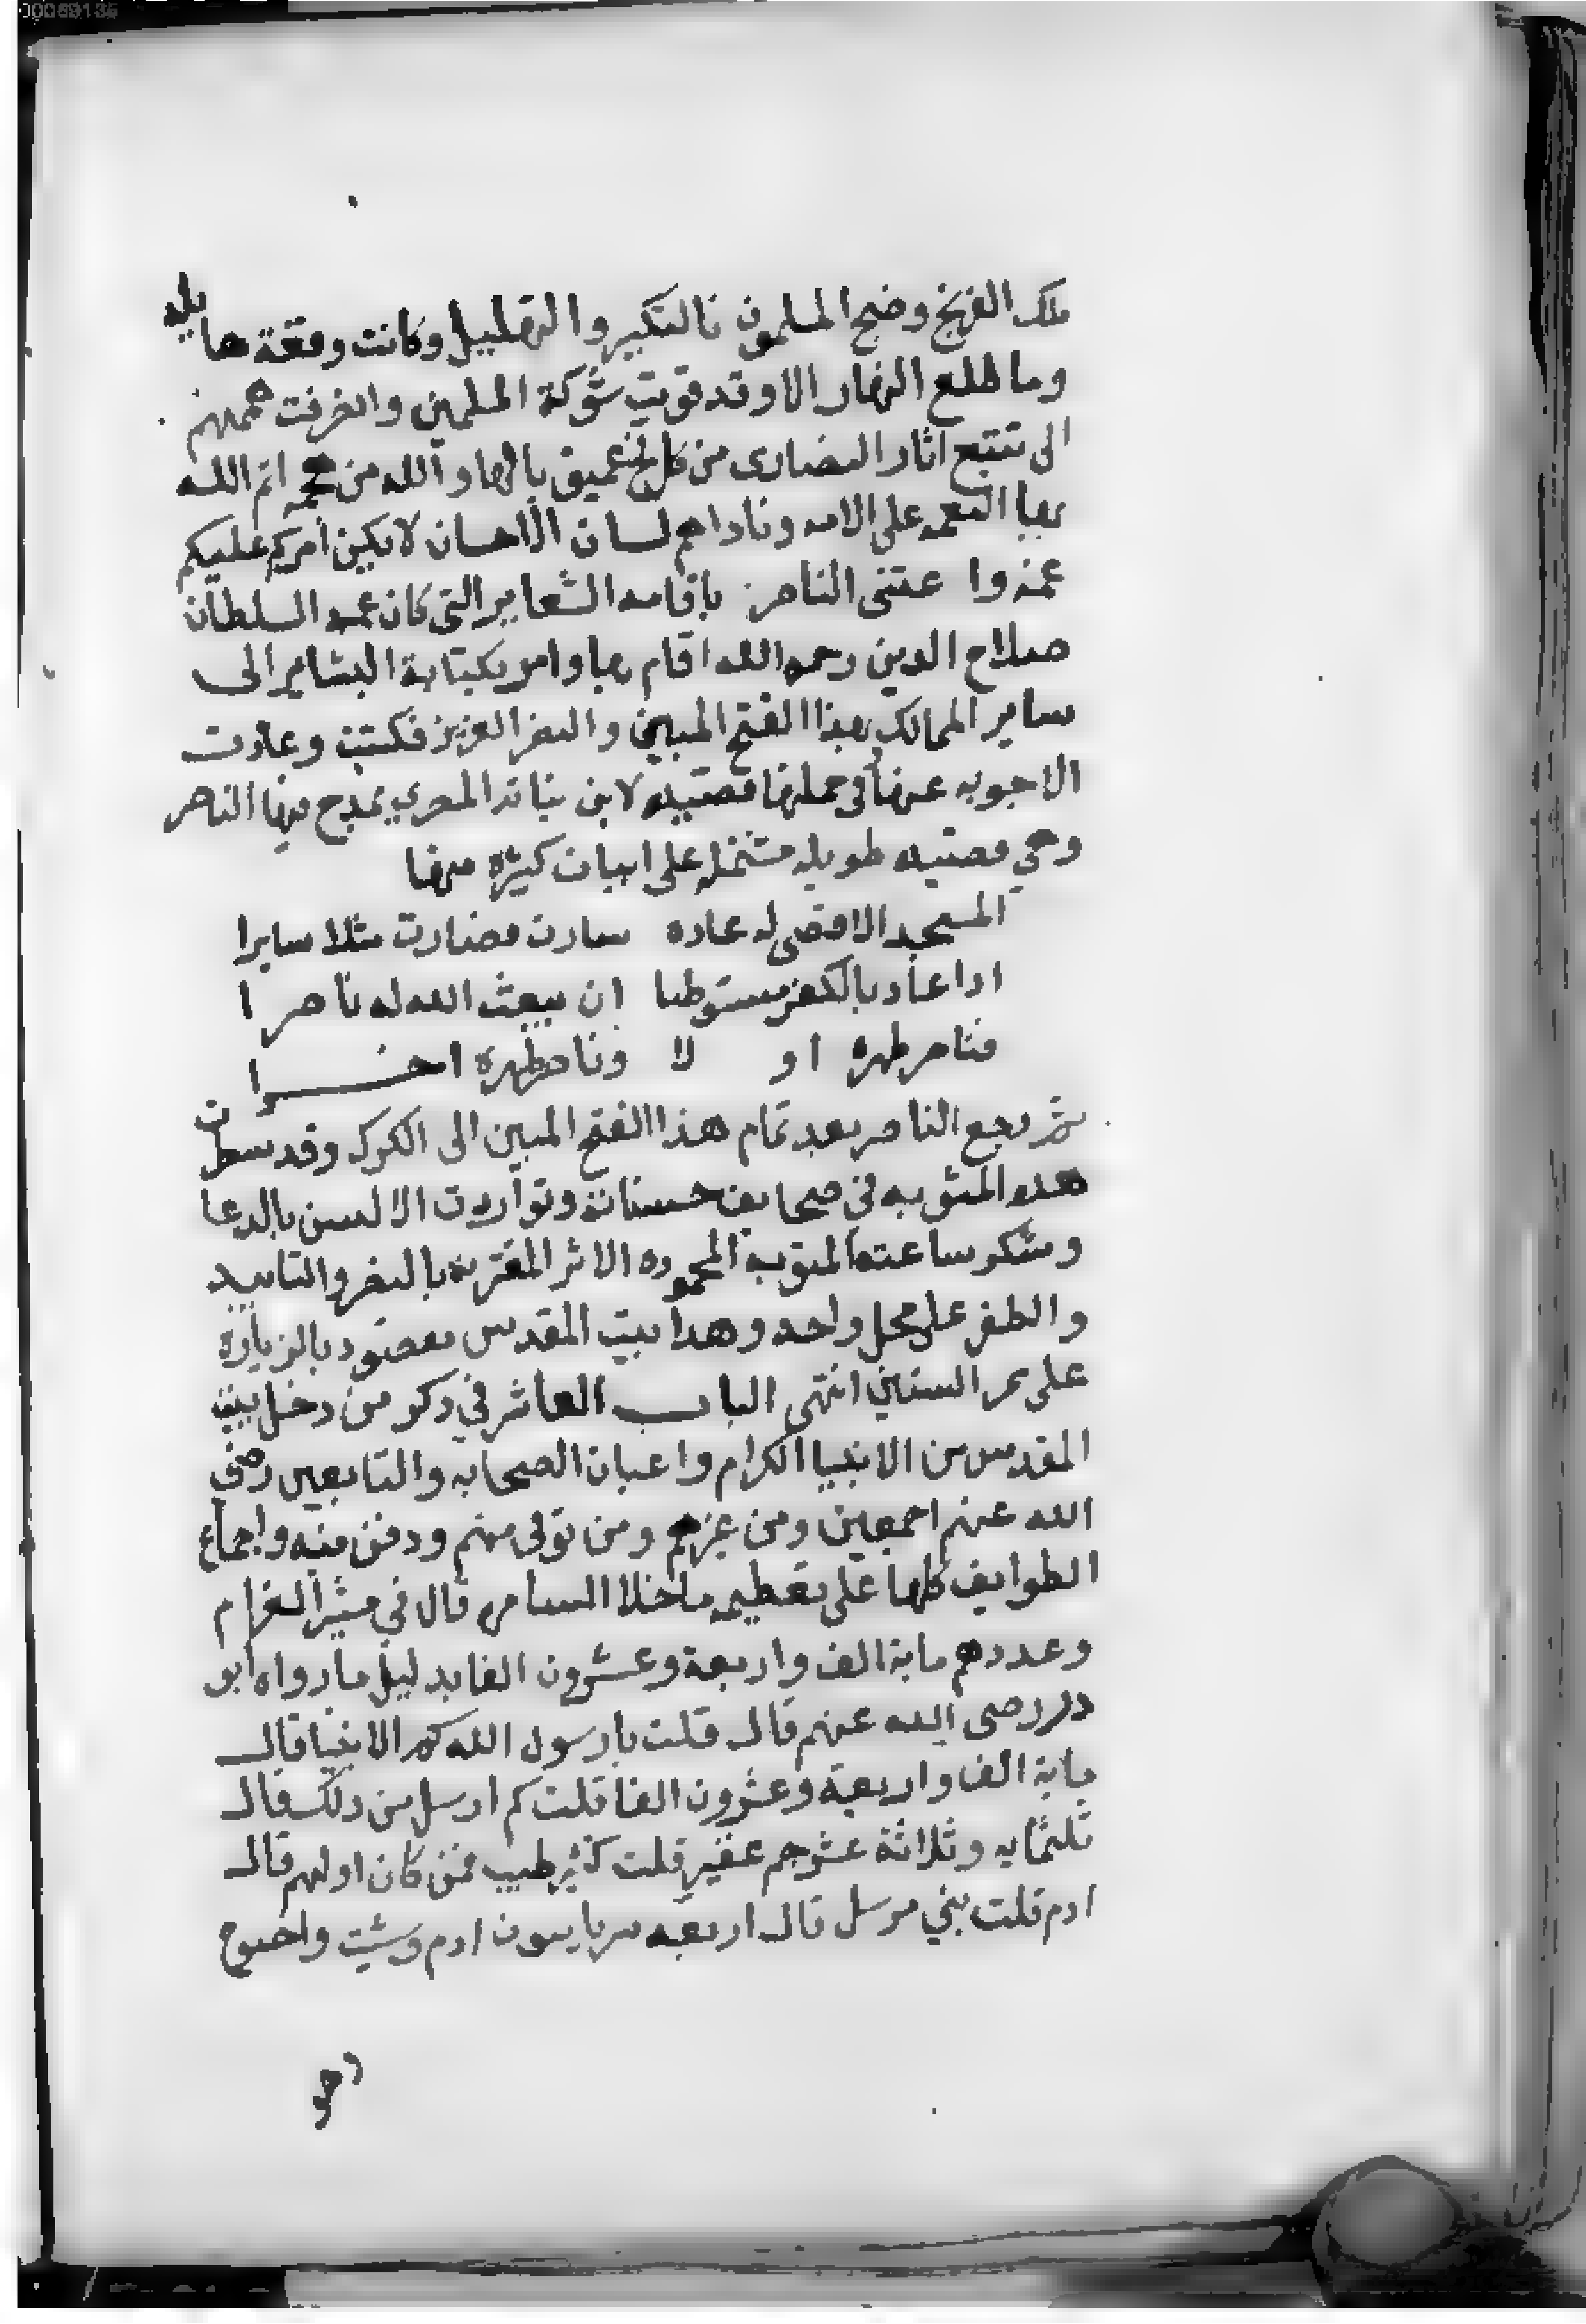 00069135
ملك الفرنج وضج المسلمون بالتكبير والتهليل وكانت وقعة هايله
وما طلع النهار الا وقد قويت شوكة المسلمين وانصرفت هممهم
الى تتبع اثار النصارى من كل فج عميق يالها والله من اتم الله
بها النعمه على الامه وناداهم لسان الاحسان لا يكن امركم عليكم
عمه واعتنى الناصر باقامه الشعاير التي كان عمه السلطان
صلاح الدين رحمه الله اقام بها وامر بكتابة البشاير الى
ساير الممالك بهذا الفتح المبين والنصر العزيز فكتبت وعادت
الاجوبه عنها في جملتها قصيده لابن نباته المصري يمدح فيها الناصر
وهي قصيده طويله مشتمله على ابيات كثيره منها
المسجد الاقصى له عاده سارت فصارت مثلا سايرا
ادا عاد بالكفر مستوطنا ان يبعث الله له ناصرا
فناصر طهره او لا وناصر طهره اخرا
ثم رجع الناصر بعد تمام هذا الفتح المبين الى الكرك وقد سطرت
هده المثوبه في صحايف حسناته وتواردت الالسن بالدعا
وشكر ساعته المحموده الاثر المقترنه بالنصر والتاييد
والظفر على محل واحد وهدا بيت المقدس مقصود بالزيارة
على مر السنين انتهى الباب العاشر في دكر من دخل بيت
المقدس من الانبيا الكرام واعيان الصحابه والتابعين رضى
الله عنهم اجمعين ومن غيرهم ومن توفى منهم ودفن فيه واجماع
الطوايف كلها على تعظيمه ماخلا السامره قال في مثير الغرام
وعددهم ماية الف واربعة وعشرون الفا بدليل ما رواه ابو
در رضى الله عنهم قال قلت يا رسول الله كم الانبيا قال
ماية الف واربعة وعشرون الفا قلت كم ارسل من دلك قال
ثلثمايه وثلاثة عشر جم غفير قلت كثير طيب فمن كان اولهم قال
ادم قلت نبي مرسل قال اربعه سريانيون ادم وشيت واخنوخ